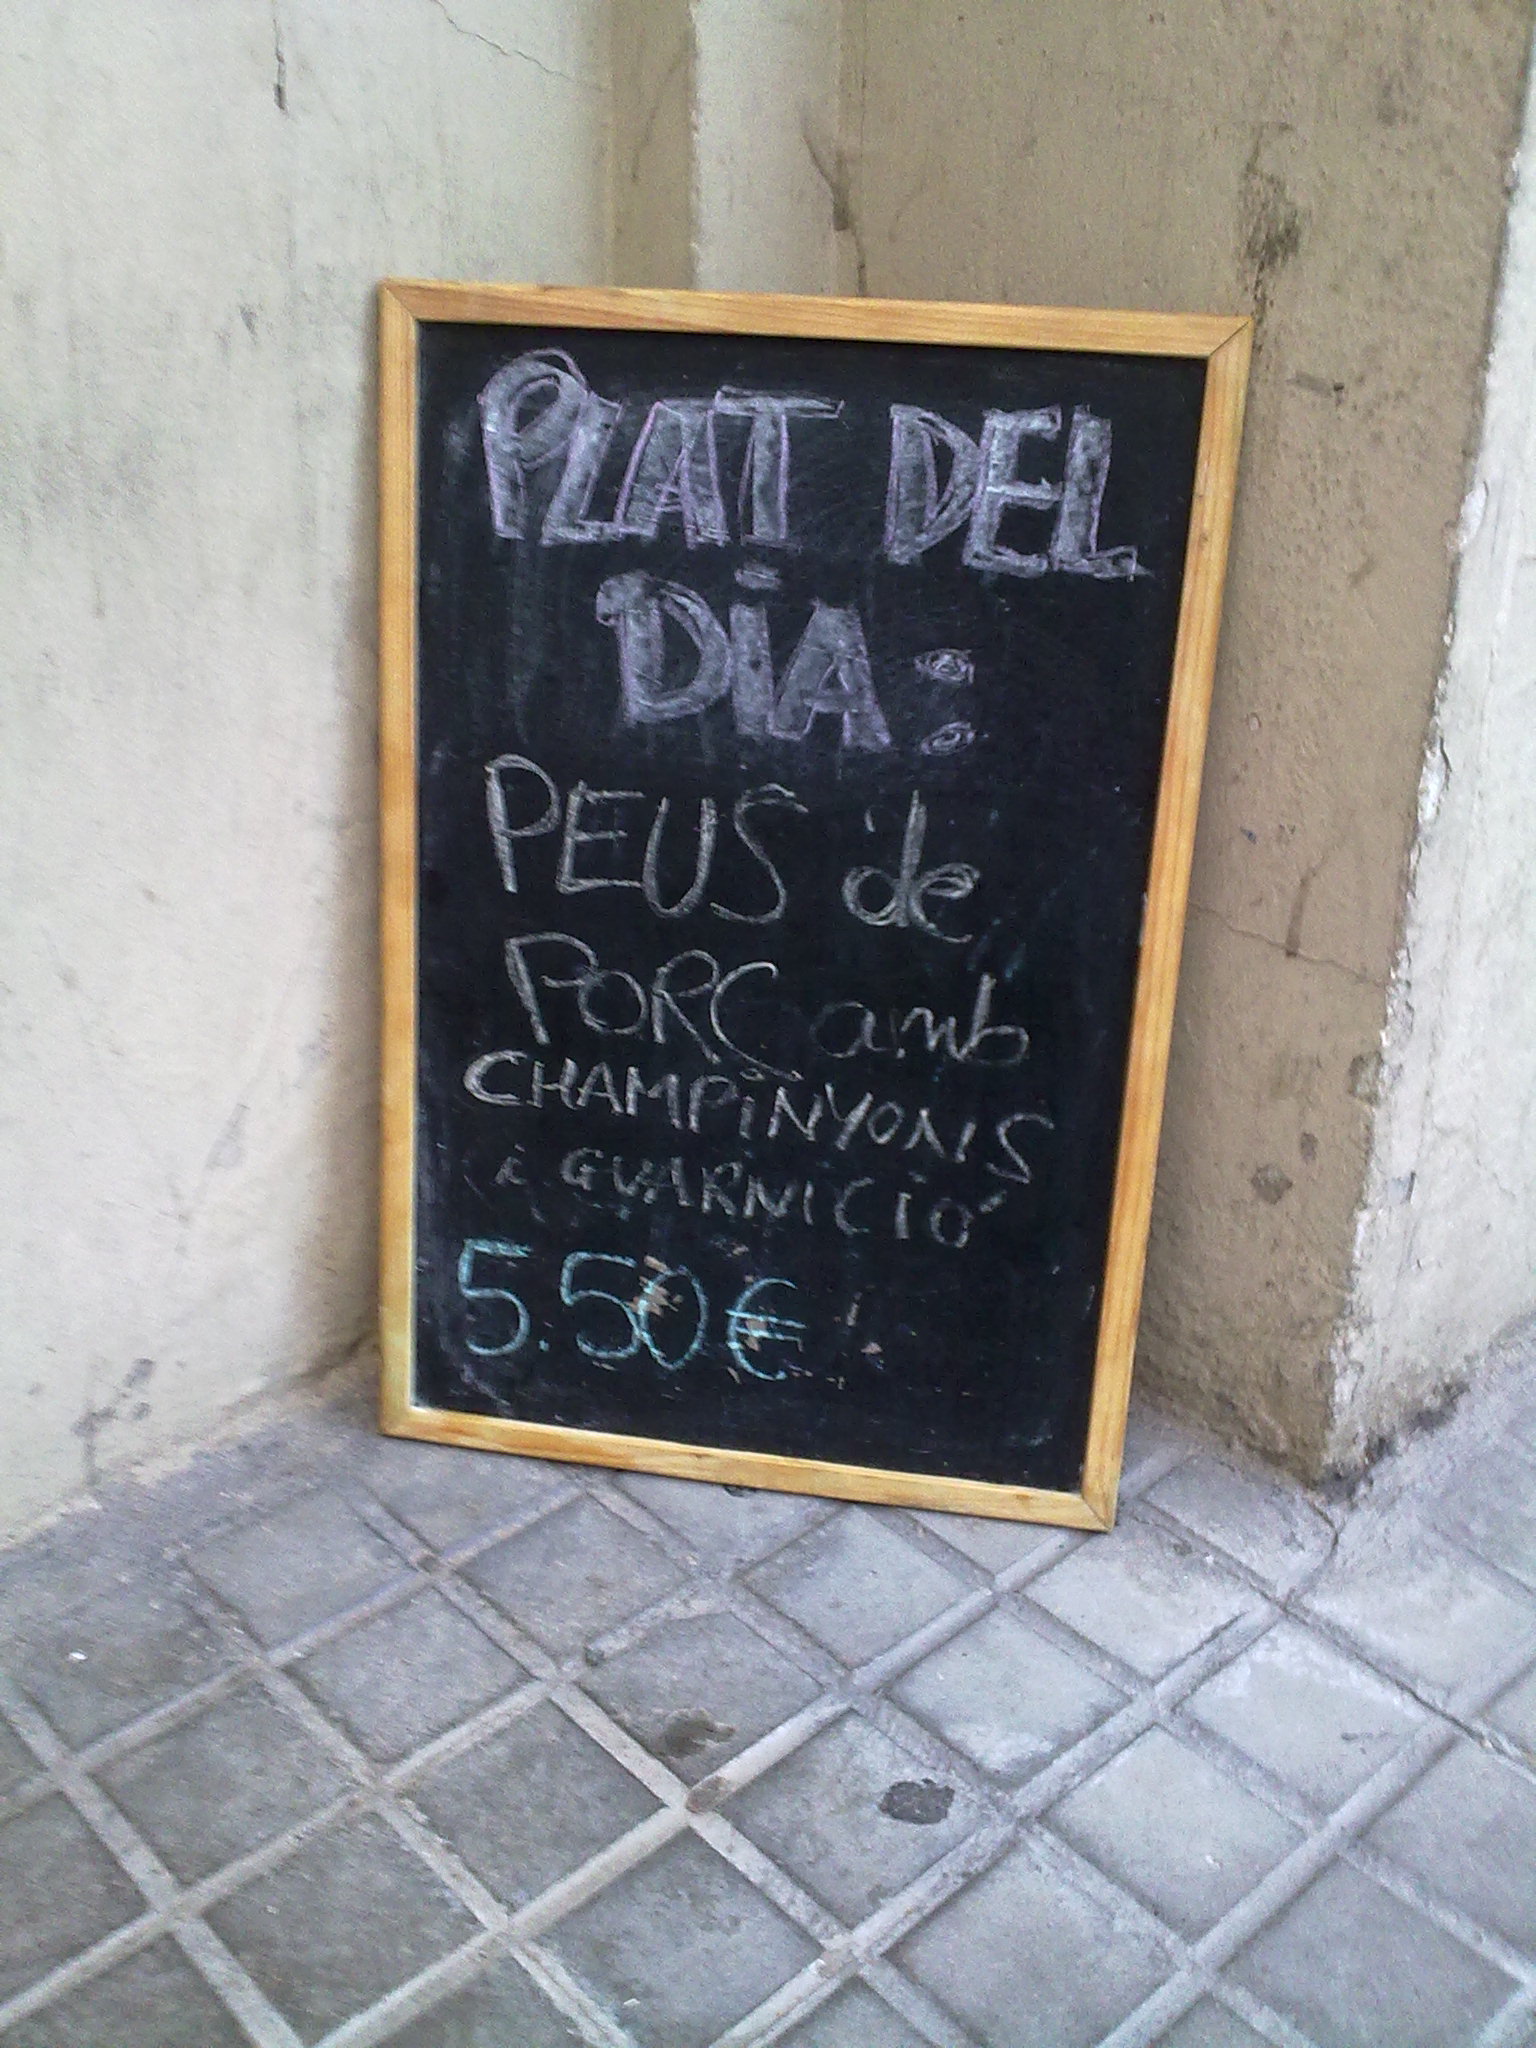 PLAT DEL
DIA:
PEUS de
PORC amb
CHAMPINYONS
i GUARNICIÓ
5.50€